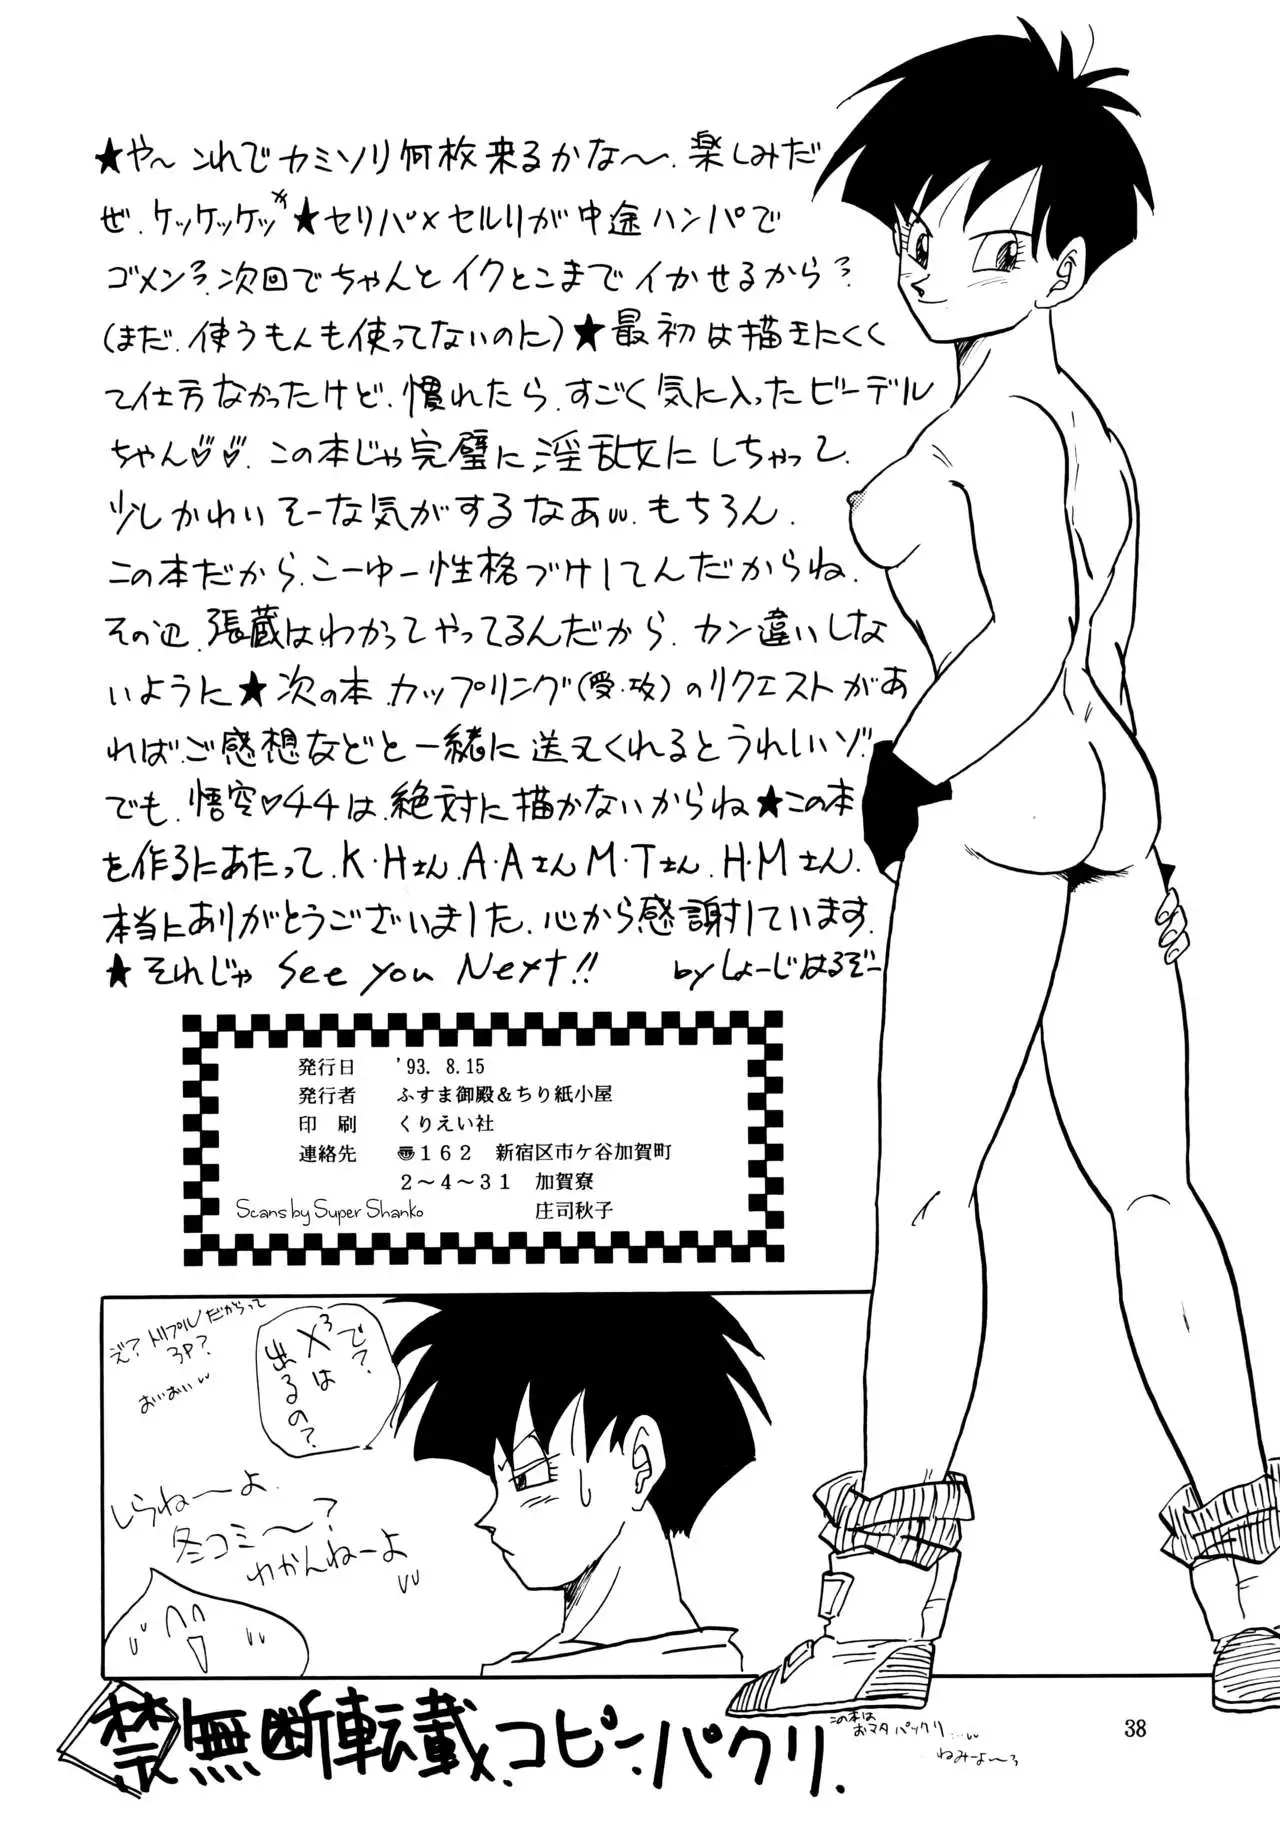 ★や〜 これでカミソリ何枚来るかな〜. 楽しみだ
ぜ. ケッケッケッ ★セリパ×セルリが中途ハンパで
ゴメンネ. 次回でちゃんとイクとこまでイかせるから?
(まだ. 使うもんも使ってないのに)★最初は描きにくく
て仕方なかったけど. 慣れたら. すごく気に入ったビーデル
ちゃん♡♡. この本じゃ完璧に淫乱女にしちゃって.
少しかわいそーな気がするなあw. もちろん.
この本だから. こーゆー性格づけしてんだからね.
その辺. 張蔵はわかってやってるんだから. カン違いしな
いように★次の本. カップリング(受・攻)のリクエストがあ
れば. ご感想などと一緒に送えくれるとうれしいゾ.
でも. 悟空♡チチは. 絶対に描かないからね★この本
を作るにあたって. K・Hさん. A・Aさん M・Tさん. H・Mさん.
本当にありがとうございました. 心から感謝しています.
★それじゃ See you Next!! by しょーじはるぞー
発行日 '93. 8.15
発行者 ふすま御殿＆ちり紙小屋
印　刷 くりえい社
連絡先 〠１６２ 新宿区市ケ谷加賀町
２〜４〜３１ 加賀寮
Scans by Super Shanko 庄司秋子
で?
X³は
出るの?
え? トリプルだからって
3P?
おいおいw
しらねーよ.
冬コミ〜?
わかんねーよ
禁 無断転載. コピー. パクリ.
この本は
おマタパックリ……w
ねみーよ〜
38